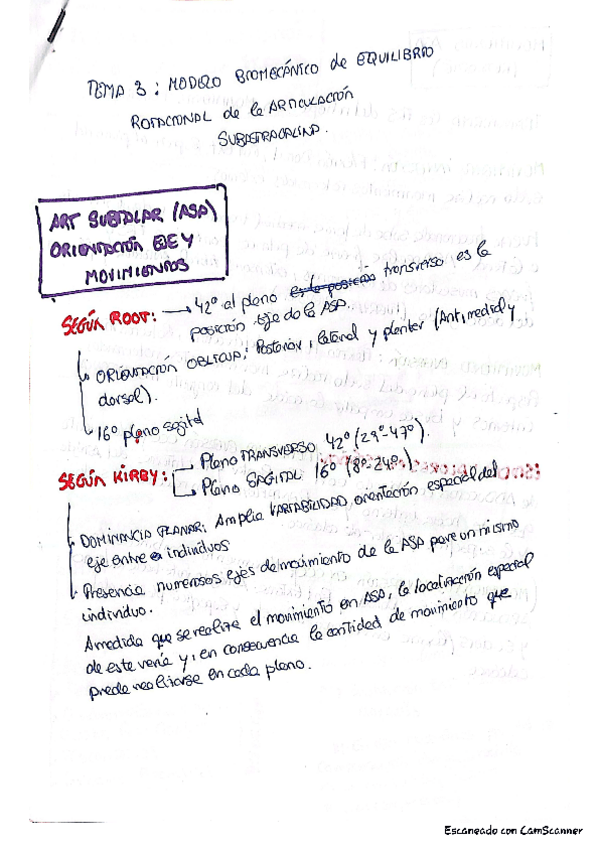 TEMA 3: MODELO BIOMECÁNICO de EQUILIBRIO
ROTACIONAL de la ARTICULACIÓN
SUBASTRAGALINA.
ART SUBTALAR (ASA)
ORIENTACIÓN EJE Y
MOVIMIENTOS
SEGÚN ROOT: → 42º al plano transverso es la
posición eje de la ASA.
ORIENTACIÓN OBLICUA: Posterior, lateral y plantar (Ant, medial y
dorsal).
16º plano sagital
SEGÚN KIRBY: Plano TRANSVERSO 42º (29º-47º).
Plano SAGITAL 16º (8º-24º).
DOMINANCIA PLANAR: Amplia VARIABILIDAD orientación espacial del
eje entre individuos
Presencia numerosos ejes de movimiento de la ASA para un mismo
individuo.
A medida que se realiza el movimiento en ASA, la localización espacial
de este varía y, en consecuencia la cantidad de movimiento que
puede realizarse en cada plano.
Escaneado con CamScanner